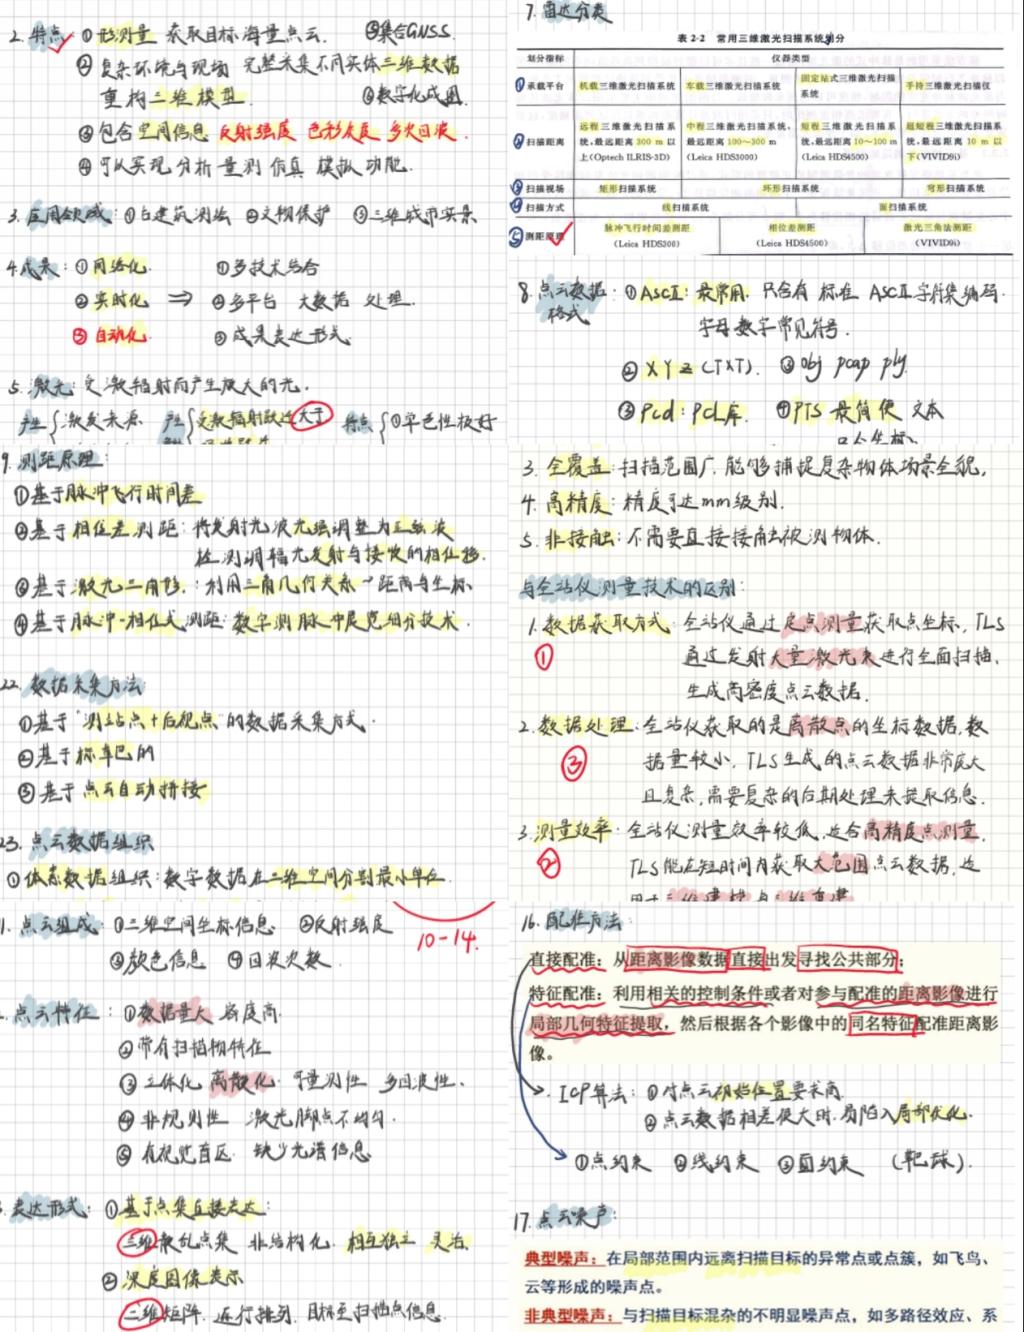 2. 特点 ① 形测量 获取目标海量点云. ⑤集合GNSS.
② 复杂环境与现场 完整采集不同实体三维数据
重构三维模型. ⑥数字化成图.
③ 包含空间信息 反射强度 色彩灰度 多次回波.
④ 可以实现分析 量测 仿真 模拟功能.
3. 应用领域: ①古建筑测绘 ②文物保护 ③三维城市实景
4. 成果: ① 网络化. ①多技术结合
② 实时化 ⇒ ②多平台 大数据 处理.
③ 自动化 ③成果表达形式
5. 激光: 受激辐射而产生放大的光.
产生 激发来源 受激辐射跃迁大于 特点 ①单色性极好
7. 雷达分类
表 2-2 常用三维激光扫描系统划分
划分指标 仪器类型
①承载平台 机载三维激光扫描系统 车载三维激光扫描系统 固定站式三维激光扫描系统 手持三维激光扫描仪
②扫描距离 远程三维激光扫描系统,最远距离 300 m 以上(Optech ILRIS-3D) 中程三维激光扫描系统,最远距离 100~300 m (Leica HDS3000) 短程三维激光扫描系统,最远距离 10~100 m (Leica HDS4500) 超短程三维激光扫描系统,最远距离 10 m 以下(VIVID9i)
③扫描视场 矩形扫描系统 环形扫描系统 穹形扫描系统
④扫描方式 线扫描系统 面扫描系统
⑤测距原理 脉冲飞行时间差测距 (Leica HDS300) 相位差测距 (Leica HDS4500) 激光三角法测距 (VIVID9i)
8. 点云数据格式: ① ASCⅡ: 最常用. 只含有标准 ASCⅡ字符集编码.
字母数字常见符号.
② XYZ(TXT). ③ obj pcap ply.
③ Pcd: PCL库. ④PTS 最简便 文本
9. 测距原理:
①基于脉冲飞行时间差
②基于相位差测距: 将发射光波光强调整为正弦波
检测调幅光发射与接收的相位移.
③基于激光三角形: 利用三角几何关系→距离与坐标
④基于脉冲-相位式测距: 数字测脉冲展宽细分技术.
22. 数据采集方法
①基于“测站点+后视点”的数据采集方式.
②基于标靶的
③基于点云自动拼接
23. 点云数据组织
①体素数据组织: 数字数据在三维空间分割最小单位
3. 全覆盖: 扫描范围广, 能够捕捉复杂物体场景全貌.
4. 高精度: 精度可达mm级别.
5. 非接触: 不需要直接接触被测物体.
与全站仪测量技术的区别:
1. 数据获取方式: 全站仪通过定点测量获取点坐标, TLS
① 通过发射大量激光束进行全面扫描,
生成高密度点云数据.
2. 数据处理: 全站仪获取的是离散点的坐标数据, 数
③ 据量较小, TLS生成的点云数据非常庞大
且复杂, 需要复杂的后期处理来提取信息.
3. 测量效率: 全站仪测量效率较低, 适合高精度点测量,
② TLS能在短时间内获取大范围点云数据, 适
1. 点云组成: ①三维空间坐标信息 ②反射强度
10-14.
③颜色信息 ④回波次数.
点云特征: ①数据量大 密度高.
②带有扫描物特征
③ 立体化 离散化 可量测性 多回波性.
④ 非规则性 激光脚点不均匀.
⑤ 有视觉盲区 缺少光谱信息
表达形式: ①基于点集直接表达:
三维散乱点集 非结构化, 相互独立 灵活.
② 深度图像表示
二维矩阵 进行排列. 目标至扫描点信息.
16. 配准方法:
直接配准: 从距离影像数据直接出发寻找公共部分;
特征配准: 利用相关的控制条件或者对参与配准的距离影像进行
局部几何特征提取, 然后根据各个影像中的同名特征配准距离影
像。
ICP算法: ①对点云初始位置要求高.
②点云数据相差很大时. 易陷入局部优化.
①点约束 ②线约束 ③面约束 (靶球).
17. 点云噪声:
典型噪声: 在局部范围内远离扫描目标的异常点或点簇, 如飞鸟、
云等形成的噪声点。
非典型噪声: 与扫描目标混杂的不明显噪声点, 如多路径效应、系